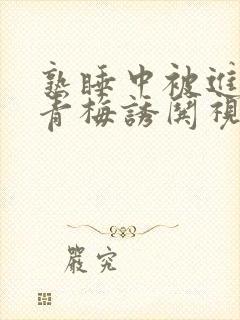 熟睡中被進
青梅誘関視
嚴究